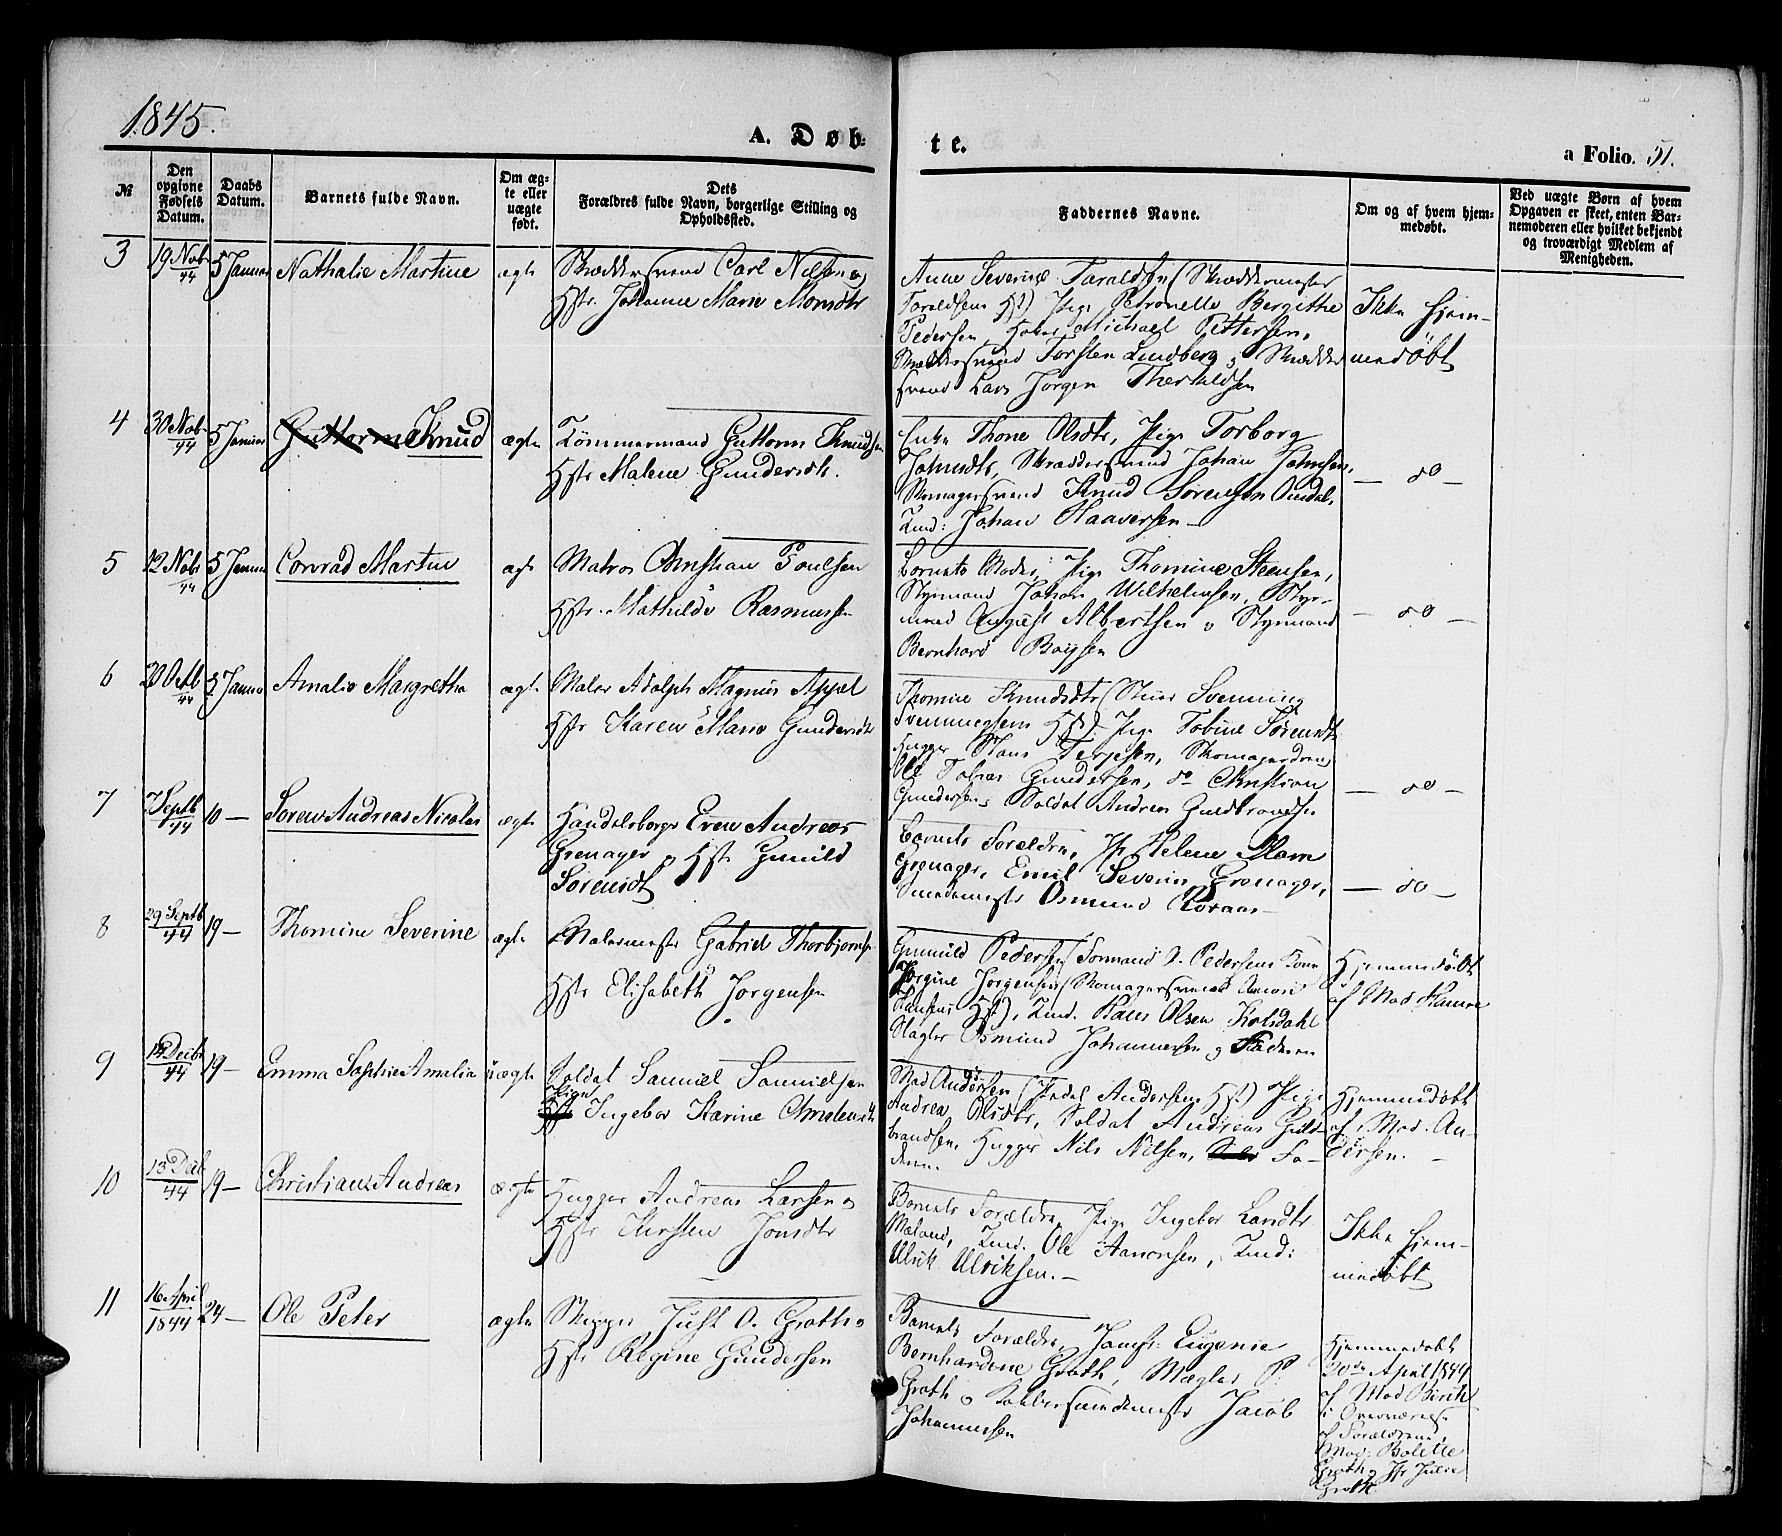 1845.
A. Døb-
te.
a Folio. 51.
№
Den opgivne Fødsels Datum.
Daabs Datum.
Barnets fulde Navn.
Om ægte eller uægte født.
Dets Forældres fulde Navn, borgerlige Stilling og Opholdssted.
Faddernes Navne.
Om og af hvem hjemmedøbt.
Ved uægte Børn af hvem Opgaven er skeet, enten Barnemoderen eller hvilket bekjendt og troværdigt Medlem af Menigheden.
3 19 Nob 44 5 Januar Nathalie Martine ægte
Skræddersvend Carl Nilsen og
Hstr. Johanne Marie Monsdtr
Anne Severine Taraldsen (Skræddermester
Taraldsens Hst) Pige Petronelle Bergithe
Pedersen Michael Pettersen,
Skræddersvend Torsten Lundberg og Skrædder
svend Lars Jørgen
Ikke hjem-
medøbt
4 30 Nob 44 5 Januar Guttorm Knud ægte
Tømmermand Guttorm Knudsen
Hstr Malene Gundersdtr.
Enke Thone Olsdtr, Pige Torborg
Johnsdtr, Skræddersvend Johan Johnsen,
Skomagersvend Knud Sørensen Omdal,
Tmd: Johan Haaversen –
— do —
5 12 Nob 44 5 Januar Conrad Martin ægte
Matros Christian Poulsen
Hstr. Mathilde Rasmussen
Barnets Moder, Pige Thomine Steensen,
Styrmand Johan Wilhelmsen, Styr-
mand August Albertsen og Styrmand
Bernhard Boysen
— do —
6 20 Octb 44 5 Januar Amalie Margrethe ægte
Maler Adolph Magnus Appel
Hstr Karen Marie Gundersdtr
Thomine Knudsdtr (Svenning
Svenningsens Hst) Pige Tobine Sørensdtr
Hugger Hans Terjesen, Skomagerdreng
Ole Tobias Gundersen, do Christian
Gundersen, Soldat Andreas Guldbrandsen
— do —
7 7 Septb 44 10 — Søren Andreas Nicolai ægte
Handelsborger Even Andreas
Grenager og Hstr Gunild
Sørensdt
Barnets Forældre, Jfr Helene Marie
Grenager, Emil Severin Grenager,
Smedemester Osmund
— do —
8 29 Septb 44 19 — Thomine Severine ægte
Malermester Gabriel Thorbjørnsen
Hstr Elisabeth Jørgensen
Gunild Pedersen (Formand Pedersens Kone
Jørgine Jørgensen (Skomagersvend
Hansens Hst), Tmd. Hans Olsen Kolsdahl
Slagter Osmund Johannesen og Faderen
Hjemmedøbt
af Mad Hanse
9 Decbr 44 19 — Emma Sophie Amalia uægte
Soldat Samuel Samuelsen
Pige Ingebor Karine
Mad Andersen (Pedel Andersens Hst) Pige
Andrea Olsdtr, Soldat Andreas Guld-
brandsen, Hugger Nils Nilsen, Fa-
deren.
Hjemmedøbt
af Mad. An-
dersen. —
10 13 Decb 44 19 — Christiane Andrea ægte
Hugger Andreas Larsen og
Hstr Kirsten Jonsdtr
Barnets Forældre, Pige Ingebor Larsdtr
Maland, Tmd. Ole Aanonsen, Tmd:
Ulrik Ulriksen. –
Ikke hjem-
medøbt
11 16 April 1844 24 — Ole Peter ægte
Skipper Just O. Groth og
Hstr Regine Gundersen
Barnets Forældre, Jomfr: Eugenie
Bernhardine Groth, Mægler P.
Groth og Kobbersmedemester Jacob
Johannessen
Hjemmedøbt
20de April 1844
af Mad Birch
i Overværelse
af Forældrene,
Mad: Bolette
Groth og Jfr Julie
Groth.